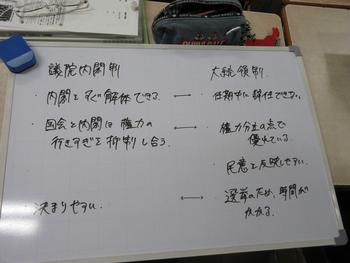 議院内閣制
大統領制.
・内閣をすぐ解体できる. ←→ ・任期中に辞任できない.
・国会と内閣は権力の
行きすぎを抑制し合う. ←→ ・権力分立の点で
優れている.
・民意を反映しやすい.
決まりやすい. ←→ ・選挙のため、時間が
かかる.